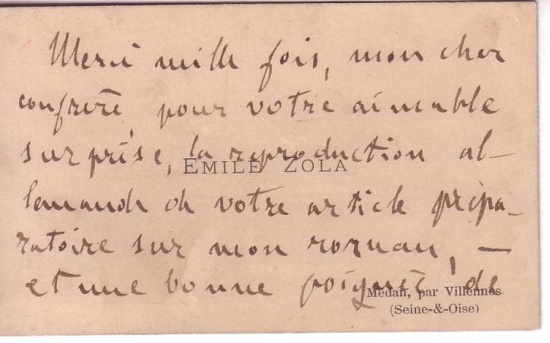 Merci mille fois, mon cher
confrère, pour votre aimable
surprise, la reproduction al-
EMILE ZOLA
lemande de votre article prépa-
ratoire sur mon roman, —
et une bonne poignée de
Médan, par Villennes
(Seine-&-Oise)